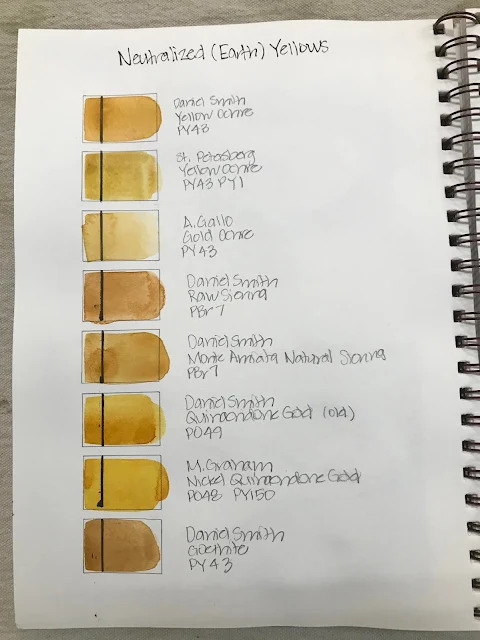 Neutralized (Earth) Yellows
Daniel Smith
Yellow Ochre
PY43
St. Petersberg
Yellow Ochre
PY43 PY1
A. Gallo
Gold Ochre
PY43
Daniel Smith
Raw Sienna
PBr7
Daniel Smith
Monte Amiata Natural Sienna
PBr7
Daniel Smith
Quinacridone Gold (old)
PO49
M. Graham
Nickel Quinacridone Gold
PO48 PY150
Daniel Smith
Goethite
PY43